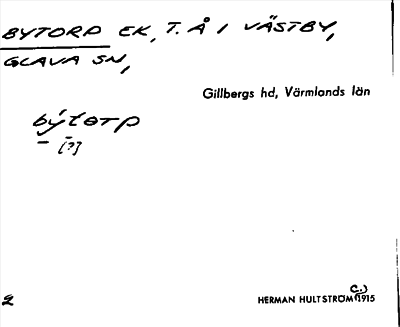 BYTORP EK, T. Å I VÄSTBY,
GLAVA SN,
Gillbergs hd, Värmlands län
býtɵrp
[?]
2
HERMAN HULTSTRÖM (C.) 1915